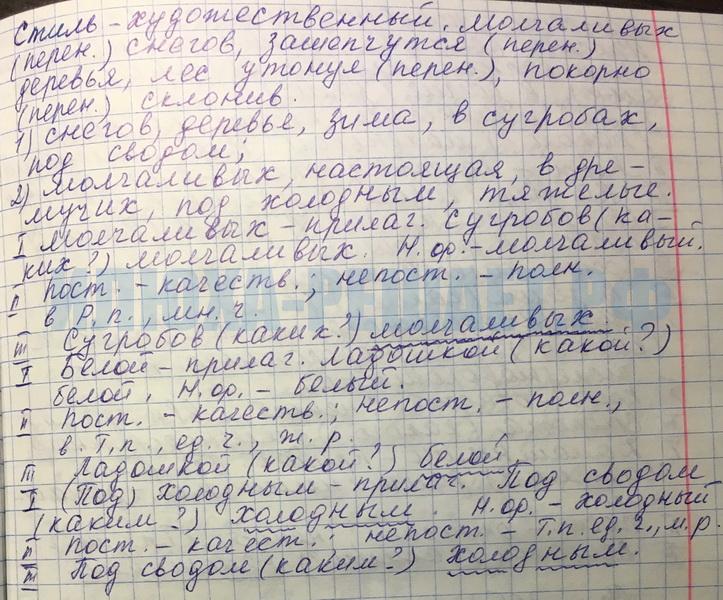 Стиль - художественный. Молчаливых
(перен.) снегов, зашепчутся (перен.)
деревья, лес утонул (перен.), покорно
(перен.) склонив.
1) снегов, деревье, зима, в сугробах,
под сводом;
2) молчаливых, настоящая, в дре-
мучих, под холодным, тяжелые.
I Молчаливых - прилаг. Сугробов (ка-
ких?) молчаливых. Н.ф. - молчаливый.
II пост. - качеств.; непост. - полн.
в Р.п., мн.ч.
III Сугробов (каких?) молчаливых.
I Белой - прилаг. Ладошкой (какой?)
белой. Н.ф. - белый.
II пост. - качеств.; непост. - полн.,
в Т.п., ед.ч., ж.р.
III Ладошкой (какой?) белой.
I (Под) холодным - прилаг. Под сводом
(каким?) холодным. Н.ф. - холодный
II пост. - качест.; непост. - Т.п. ед.ч., м.р.
III Под сводом (каким?) холодным.